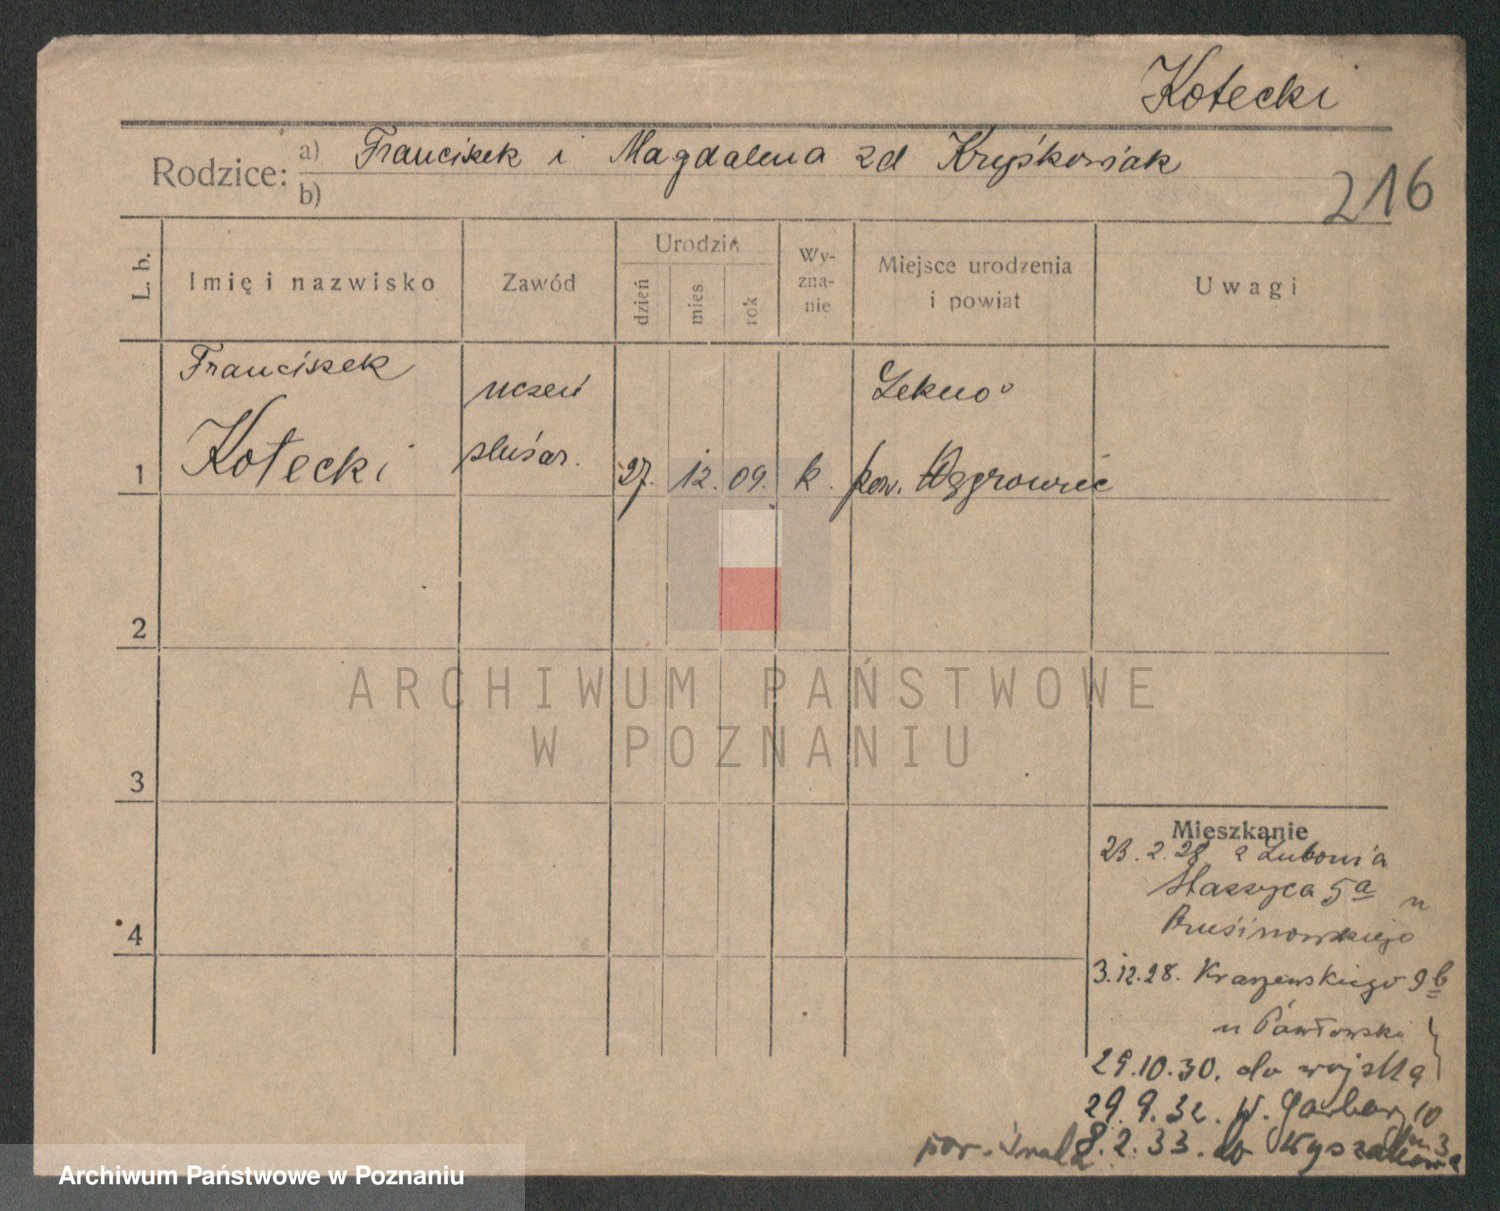 Kotecki
Rodzice: a) Franciszek i Magdalena zd Kryśkowiak
b)
216
L. b.
Imię i nazwisko
Zawód
Urodzin
dzień
mies.
rok
Wy-
zna-
nie
Miejsce urodzenia
i powiat
Uwagi
1
Franciszek
Kotecki
uczeń
ślusar.
27. 12. 09. k.
Łekno
pow. Wągrowiec
2
3
4
ARCHIWUM PAŃSTWOWE
W POZNANIU
Mieszkanie
23. 2. 28 z Lubonia
Staszyca 5a u
Prusinowskiego
3.12.28. Kraszewskiego 9b
u Pawłowski
29.10.30. do wojska
29.9.32. W. Garbary 10
m 3
8.2.33. do
pow.
Archiwum Państwowe w Poznaniu